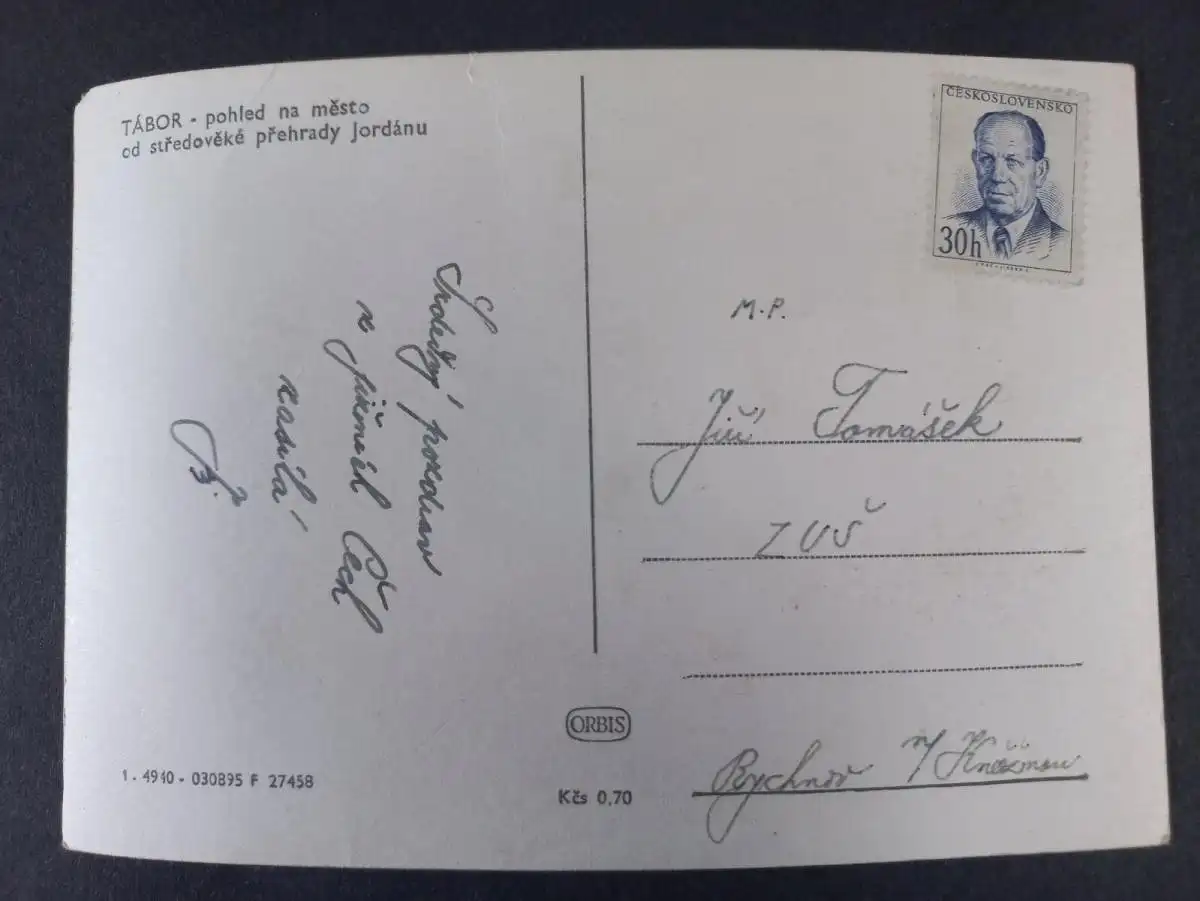 TÁBOR - pohled na město
od středověké přehrady Jordánu
ČESKOSLOVENSKO
30h
Srdečný pozdrav
z jižních Čech
zasílá
M.P.
Jiří Tomášek
ZUŠ
Rychnov n/Kněžnou
ORBIS
1 - 4940 - 030895 F 27458
Kčs 0,70